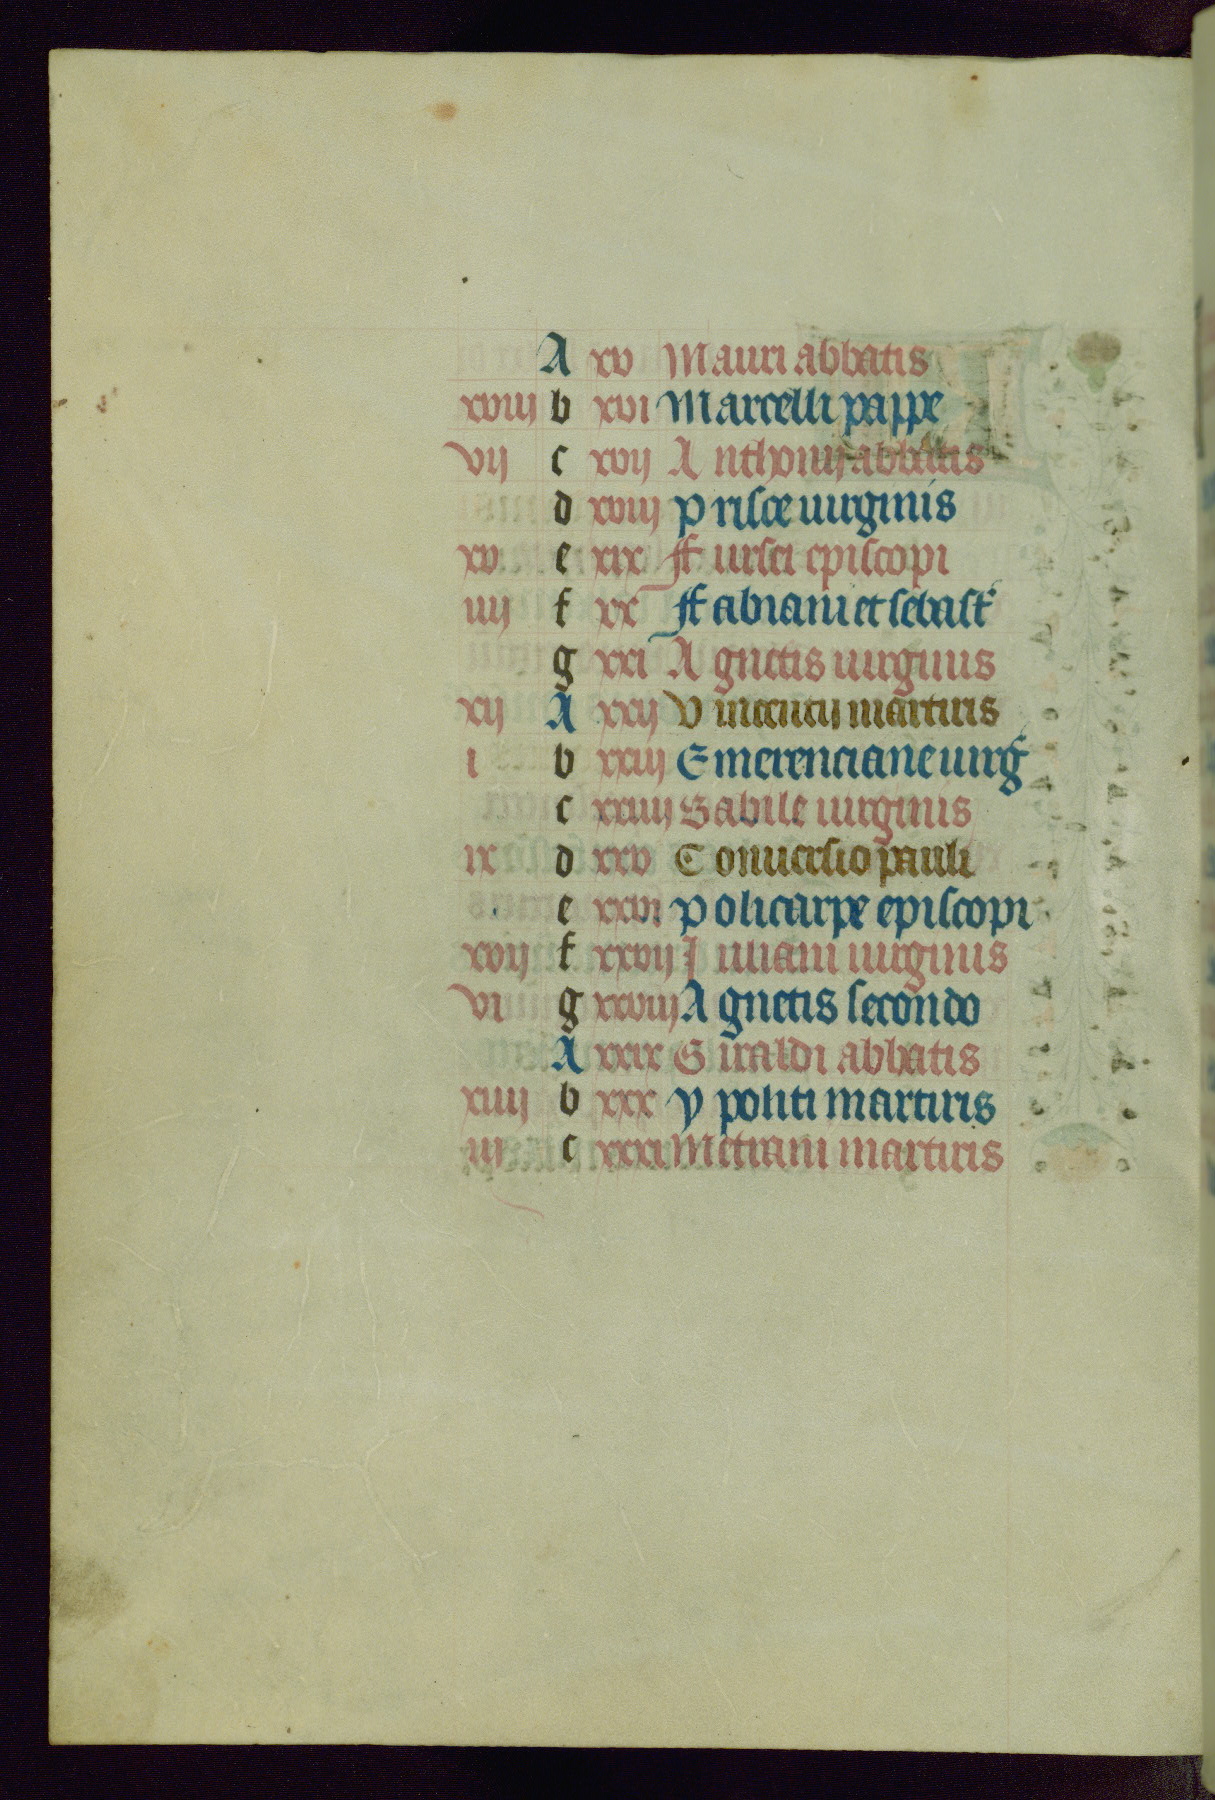 A xv Mauri abbatis
xviij b xvi Marcelli pappe
vij c xvij Anthonij abbatis
d xviij Prisce uirginis
xv e xix ffursei episcopi
iiij f xx ffabiani et sebast'
g xxi Agnetis uirginis
xij A xxij Vincentij martiris
i b xxiij Emerenciane uirg'
c xxiiij Babile uirginis
ix d xxv Conuersio pauli
e xxvi Policarpe episcopi
xvij f xxvij Iuliani uirginis
vi g xxviij Agnetis secondo
A xxix Giraldi abbatis
xiiij b xxx Ypoliti martiris
iij c xxxi Metrani martiris